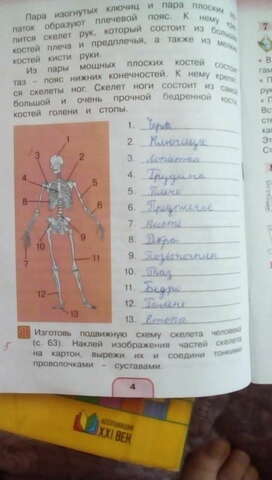 Пара изогнутых ключиц и пара плоских ло-
паток образуют плечевой пояс. К нему кре-
пится скелет рук, который состоит из больших
костей плеча и предплечья, а также из мелких
костей кисти руки.
Из пары мощных плоских костей состоит
таз – пояс нижних конечностей. К нему крепят-
ся скелеты ног. Скелет ноги состоит из самой
большой и очень прочной бедренной кости,
костей голени и стопы.
1. Череп
2. Ключица
3. Лопатка
4. Грудина
5. Плечо
6. Предплечье
7. Кисть
8. Рёбра
9. Позвоночник
10. Таз
11. Бедро
12. Голень
13. Стопа
1
2
3
4
5
5
6
6
7
7
8
9
10
11
12
13
Изготовь подвижную схему скелета человека
(с. 63). Наклей изображения частей скелета
на картон, вырежи их и соедини тонкими
проволочками – суставами.
5
4
XXI ВЕК
7